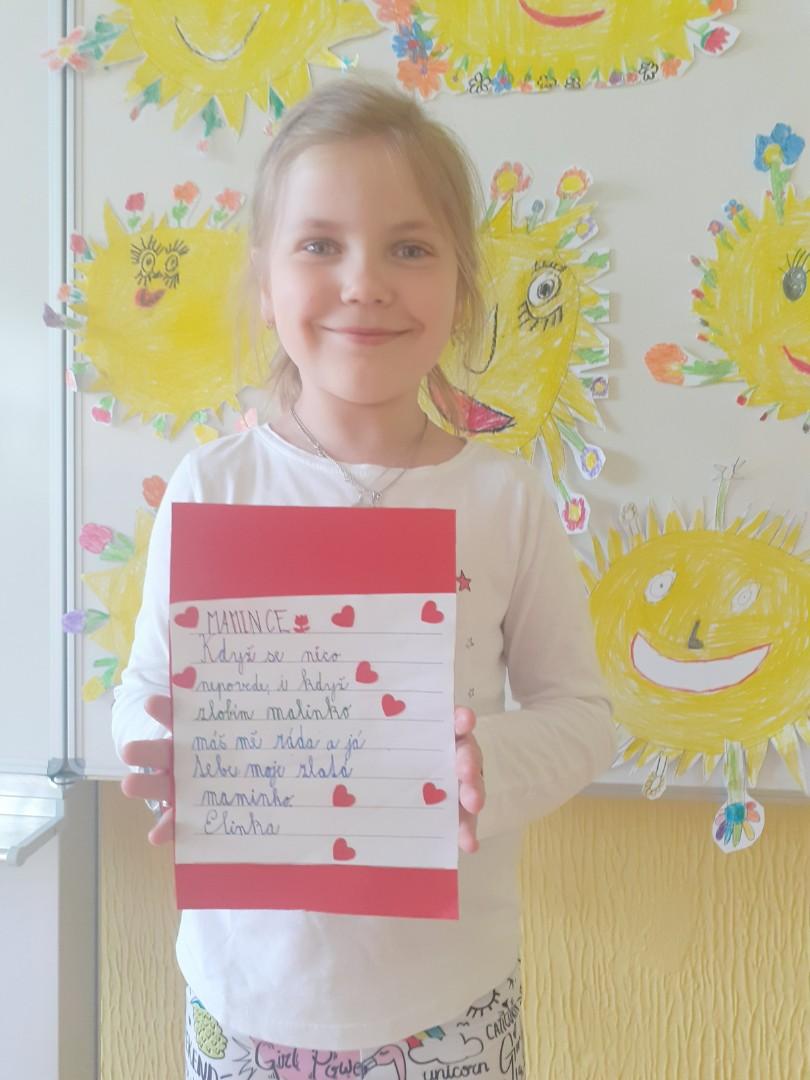 MAMINCE
Když se něco
nepovede, i když
zlobím malinko
máš mě ráda a já
tebe moje zlatá
maminko.
Elinka
CATICORN
Girl Power
unicorn